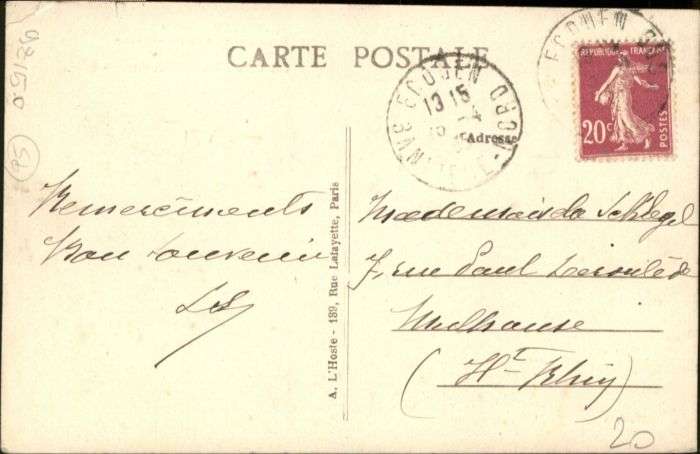 CARTE POSTALE
REPUBLIQUE FRANÇAISE
20c
POSTES
ECOUEN
ECOUEN GARE
13 15
-4
Adresse
95
Remerciments
Bon souvenir
LS
A. L'Hoste - 189, Rue Lafayette, Paris
Mademoiselle Schlegel
7, rue Paul Déroulède
Mulhouse
(Ht Rhin)
20